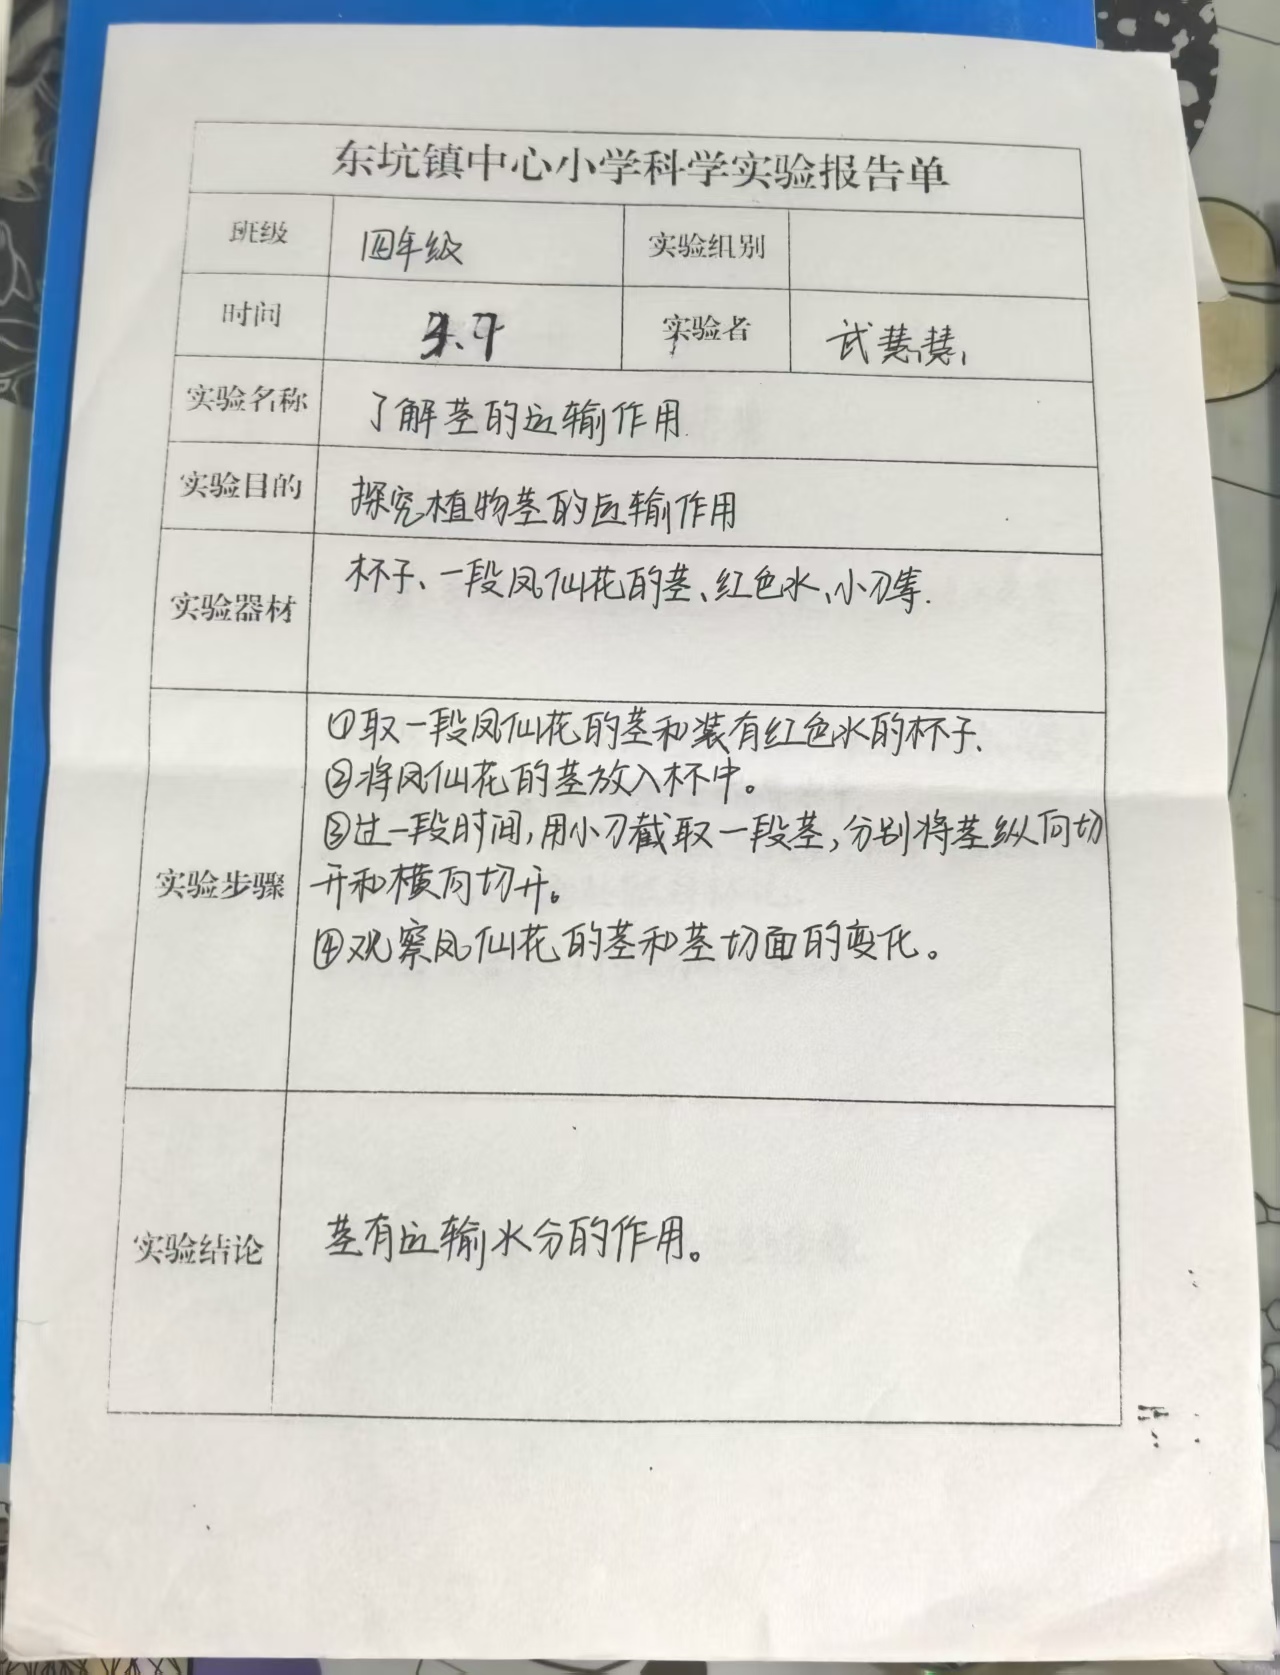 东坑镇中心小学科学实验报告单
班级 四年级 实验组别
时间 实验者 武慧慧
实验名称 了解茎的运输作用
实验目的 探究植物茎的运输作用
实验器材 杯子、一段凤仙花的茎、红色水、小刀等.
实验步骤
①取一段凤仙花的茎和装有红色水的杯子.
②将凤仙花的茎放入杯中。
③过一段时间,用小刀截取一段茎,分别将茎纵向切
开和横向切开。
④观察凤仙花的茎和茎切面的变化。
实验结论 茎有运输水分的作用。